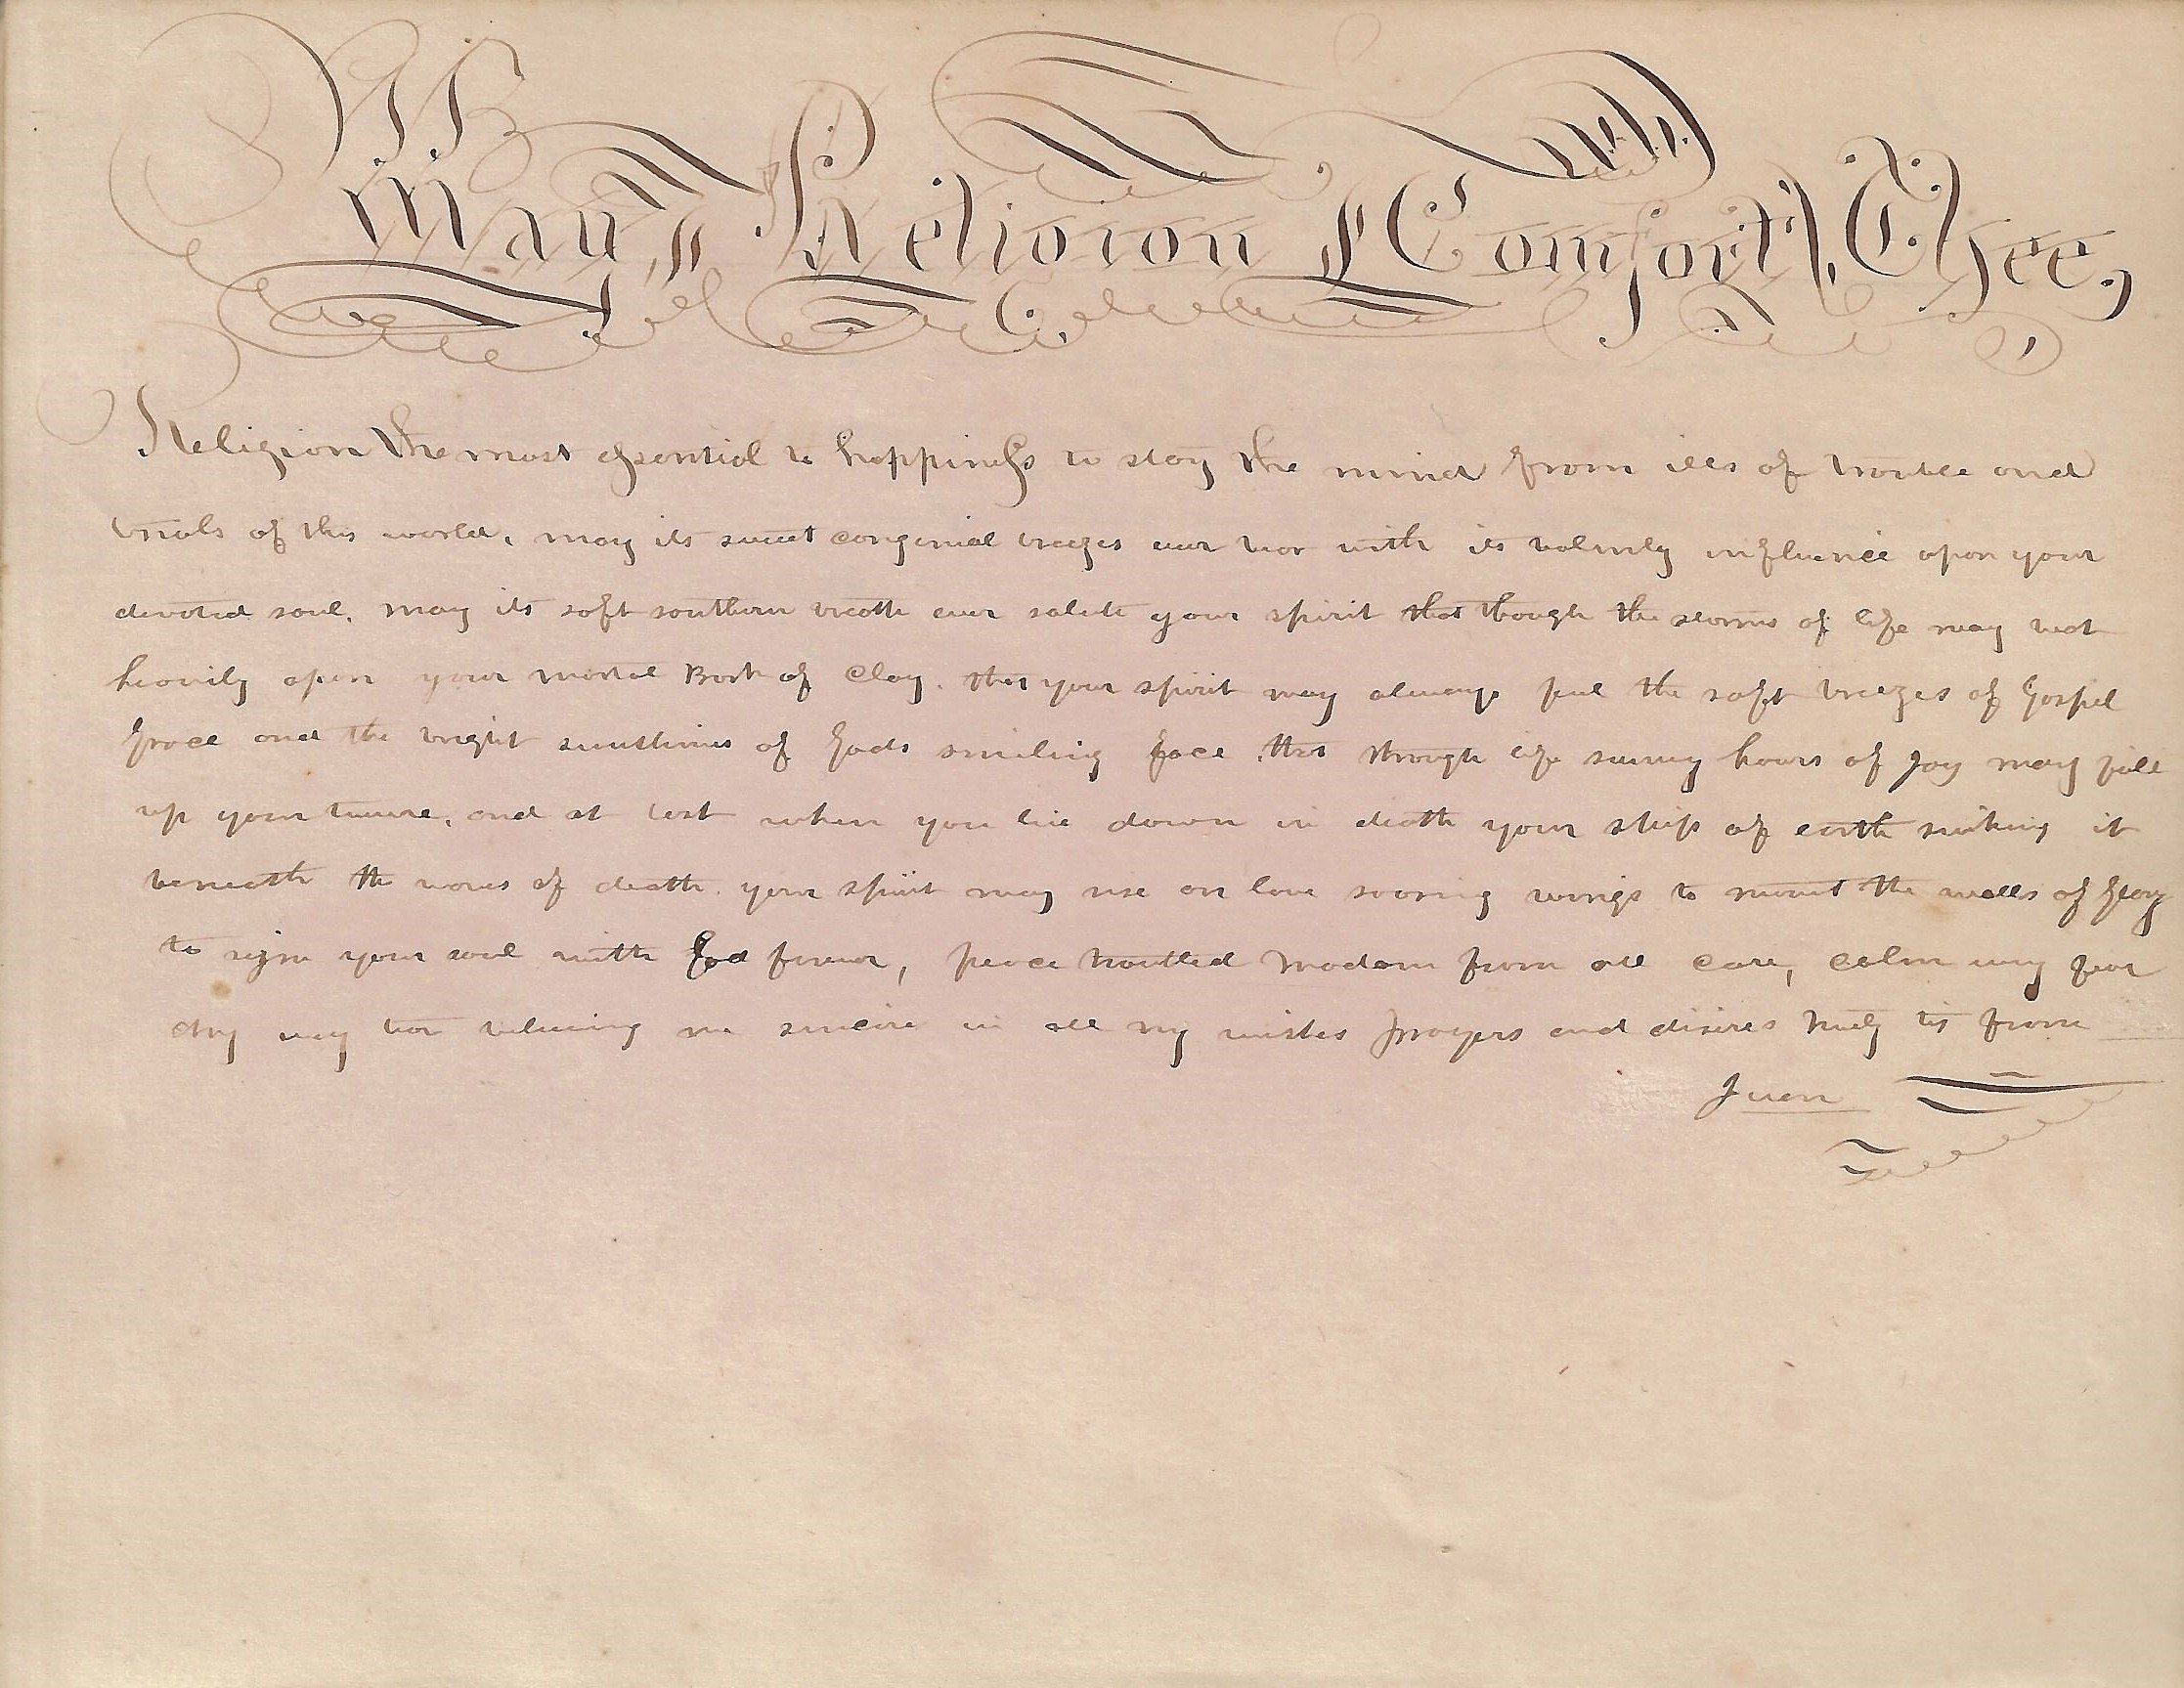 May Religion Comfort Thee,
Religion the most essential to happiness to stay the mind from ills of trouble and
trials of this world, may its sweet congenial breezes ever bear with its balmly influence upon your
devoted soul. may its soft southern breath ever salute your spirit that though the storms of life may beat
heavily upon your mortal Bark of Clay. that your spirit may always feel the soft breezes of Gospel
grace and the bright sunshines of Gods smiling face, that through life sunny hours of Joy may fill
up your and at last when you lie down in death your ship of earth sinking it
beneath the waves of death. your spirit may rise on love soaring wings to mount the walls of glory
to reign your soul with God forever, peace troubled Madam from all care, calm evry fear
dry evry tear beleiving me sincere in all my wishes prayers and desires truly tis from
Juan